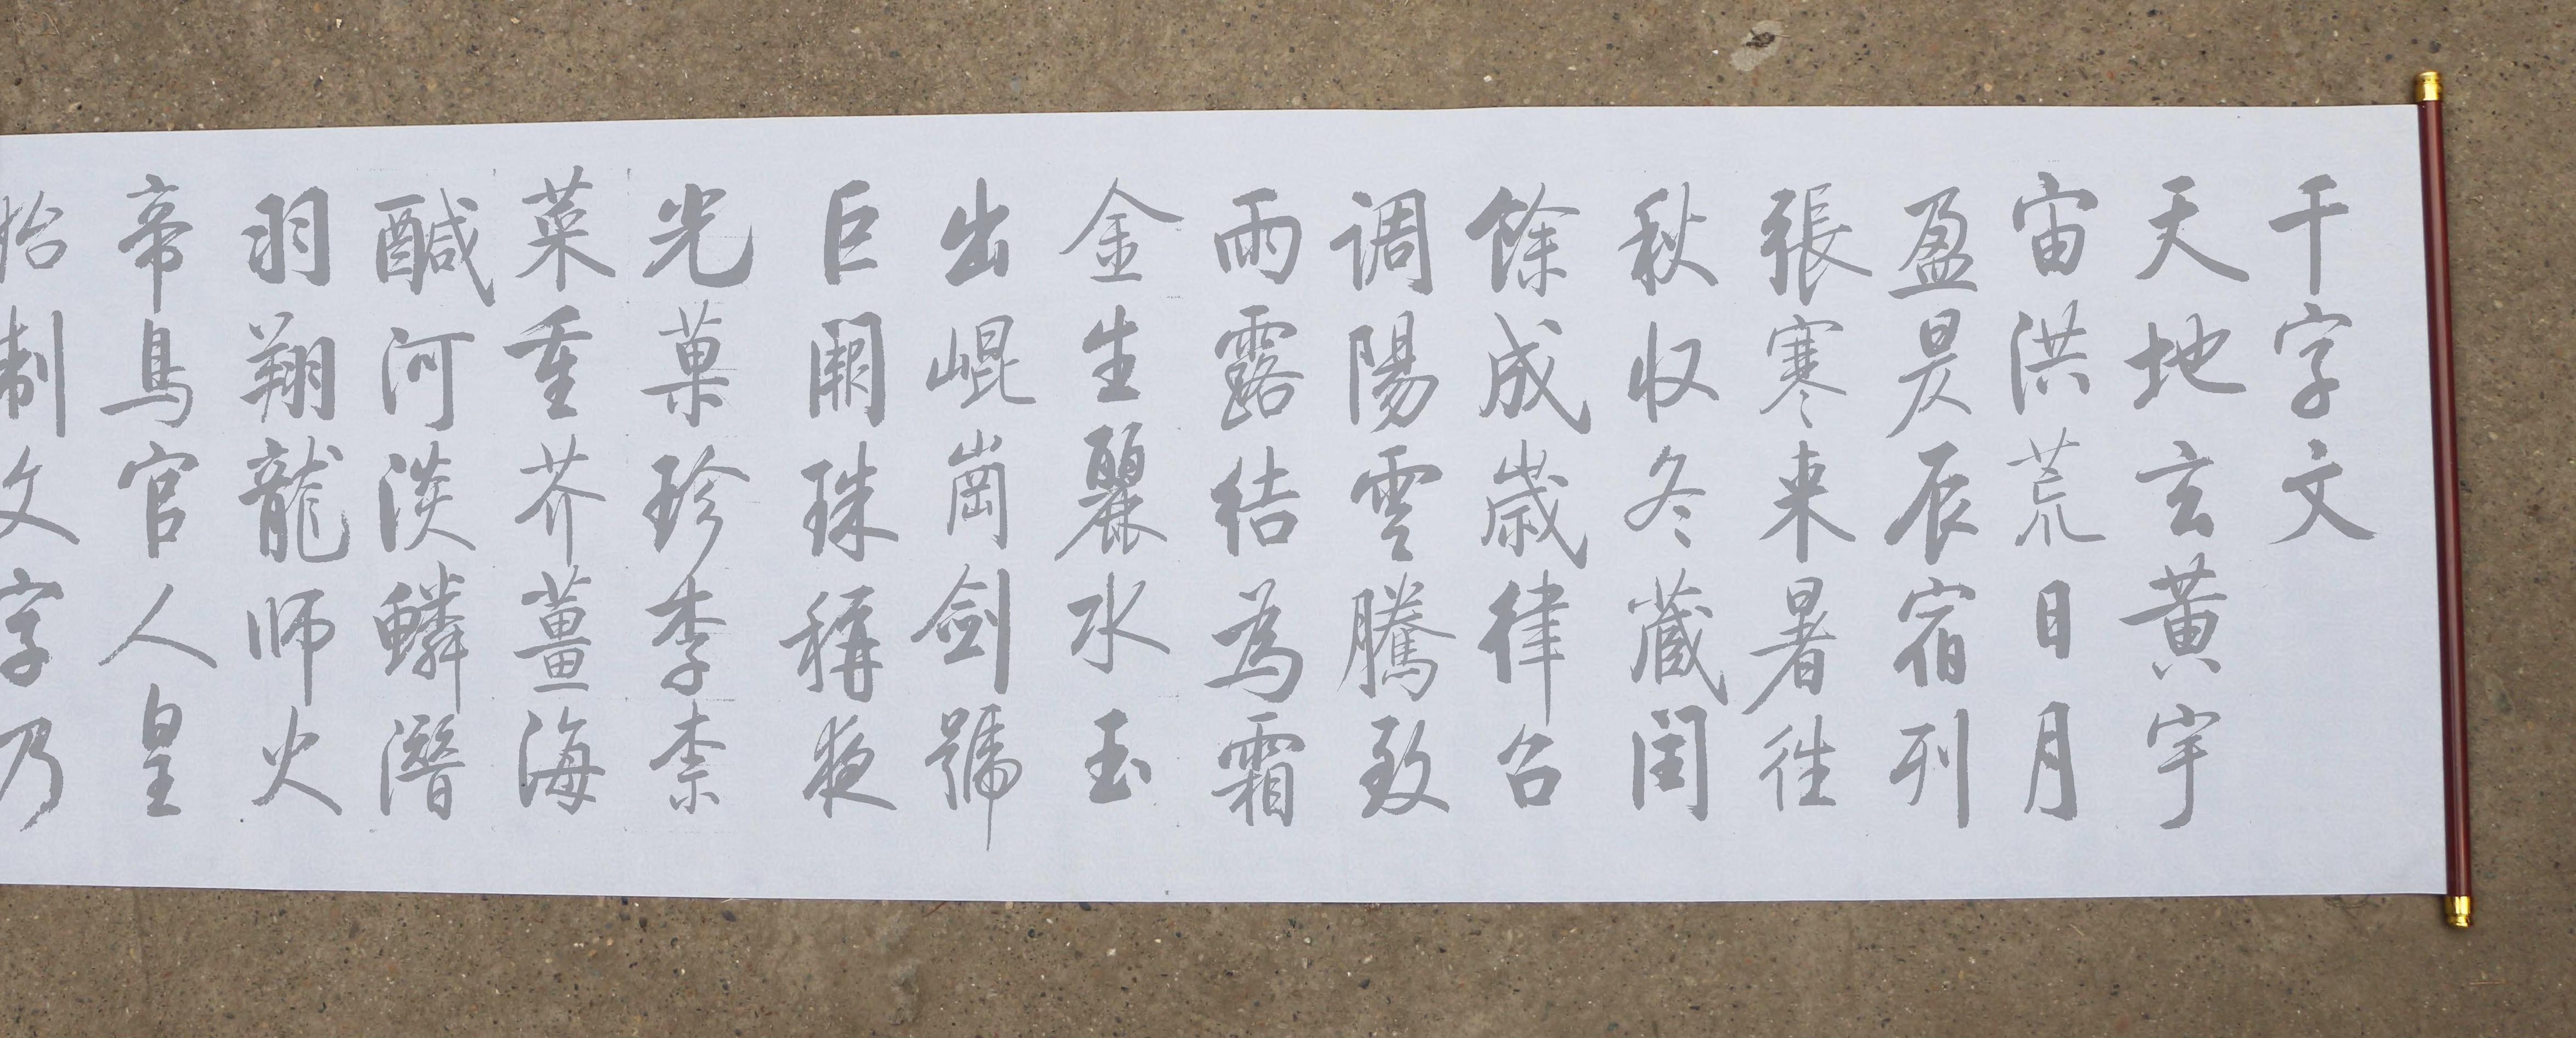 千字文
天地玄黄宇
宙洪荒日月
盈昃辰宿列
張寒来暑往
秋收冬藏閏
餘成歲律召
调陽雲騰致
雨露結為霜
金生麗水玉
出崐崗剑號
巨闕珠稱夜
光菓珍李柰
菜重芥薑海
醎河淡鱗潛
羽翔龍师火
帝鳥官人皇
始制文字乃